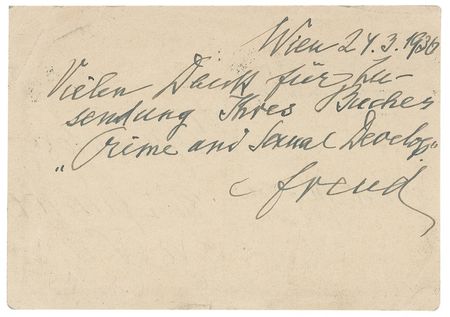 Wien 24.3.1936
Vielen Dank für Zu-
sendung Ihres Buches
„Crime and Sexual Develop"
Freud